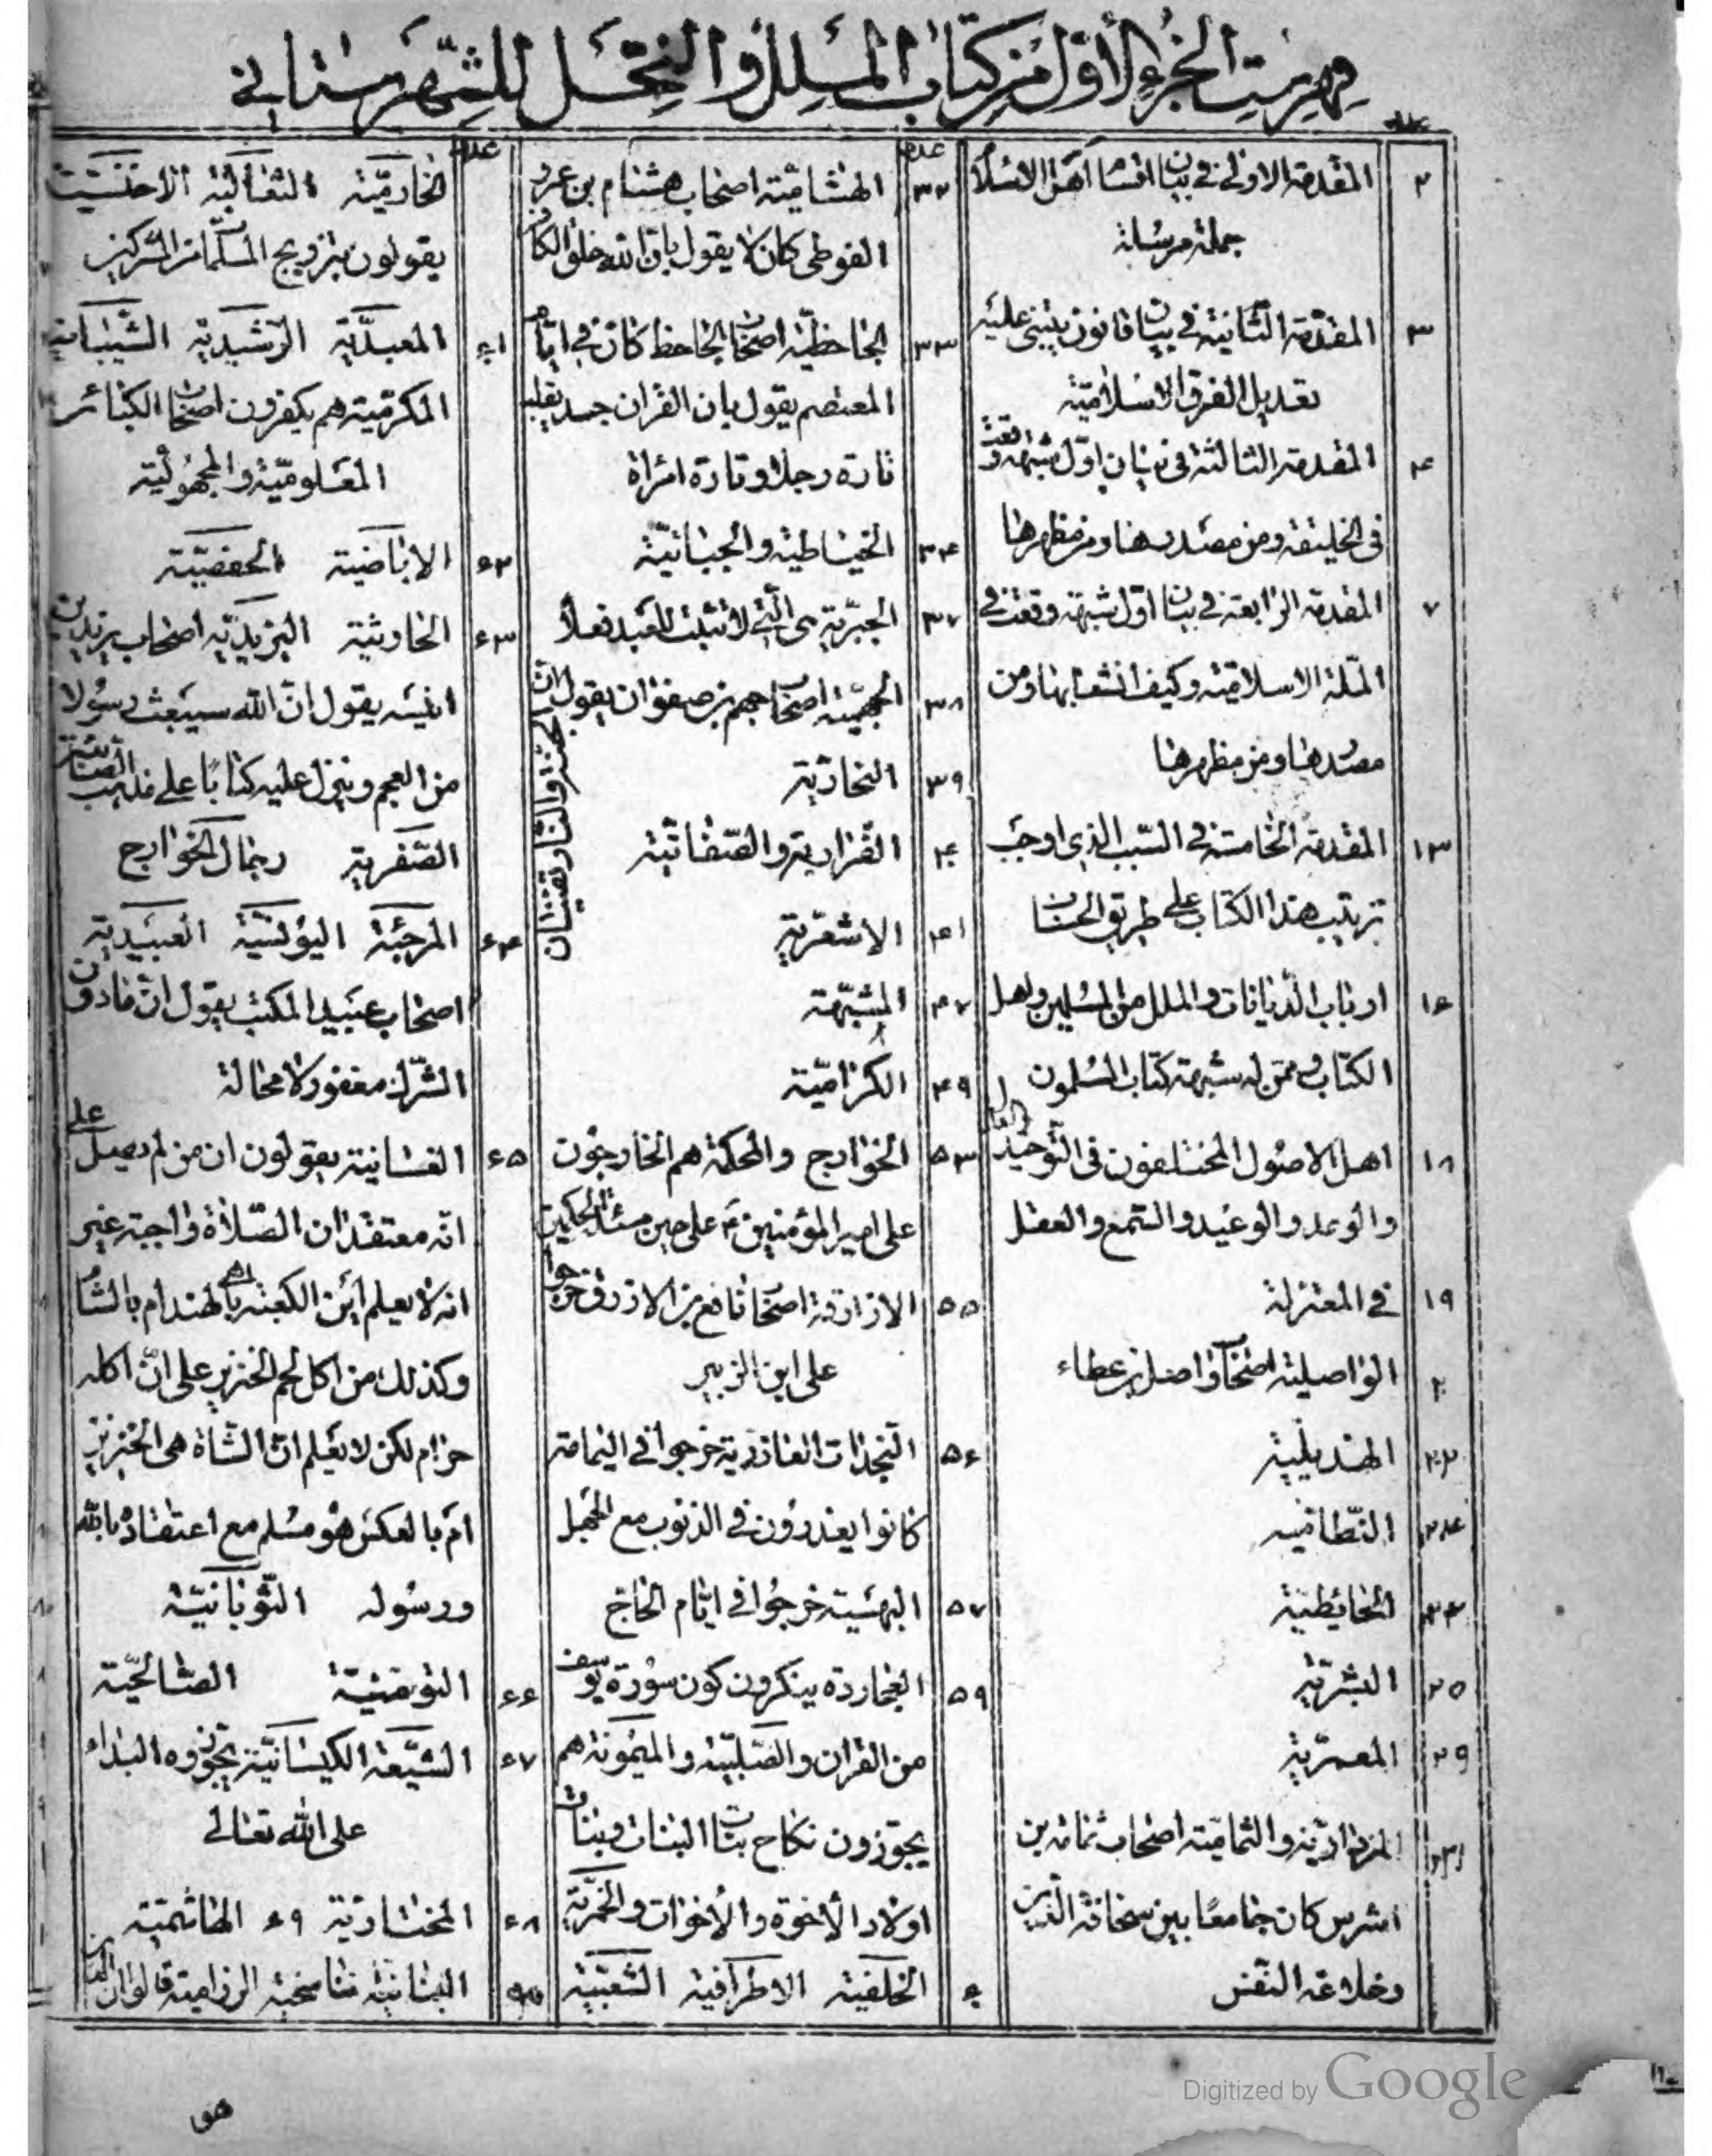 فهرست الجزء الأول من كتاب الملل والنحل للشهرستاني
عدد
٢ المقدمة الاولى في بيان اقسام اهل الاسلام
جملة مرسلة
٣ المقدمة الثانية في بيان قانون يبتني عليه
تعديل الفرق الاسلامية
٤ المقدمة الثالثة في بيان اول شبهة وقعت
في الخليقة ومن مصدرها ومن مظهرها
٧ المقدمة الرابعة في بيان اول شبهة وقعت في
الملة الاسلامية وكيف انشعابها ومن
مصدرها ومن مظهرها
١٣ المقدمة الخامسة في السبب الذي اوجب
ترتيب هذا الكتاب على طريق الحساب
١٦ ارباب الديانات والملل من المسلمين واهل
الكتاب وممن له شبهة كتاب المسلمون
١٨ اهل الاصول المختلفون في التوحيد والعدل
والوعد والوعيد والسمع والعقل
١٩ في المعتزلة
٢٠ الواصلية اصحاب واصل بن عطاء
٢٢ الهذيلية
٢٤ النظامية
الحائطية
٢٥ البشرية
٢٩ المعمرية
٣١ المزدارية والثمامية اصحاب ثمامة بن
اشرس كان جامعا بين سخافة الدين
وخلاعة النفس
عدد
٣٢ الهشامية اصحاب هشام بن عمرو
الفوطي كان لا يقول بان الله خلق الكافر
٣٣ الجاحظية اصحاب الجاحظ كان في ايام
المعتصم يقول بان القران جسد يقلب
تارة رجلا وتارة امراة
٣٤ الخياطية والجبائية
٣٧ الجبرية هي التي لا تثبت للعبد فعلا
٣٨ الجهمية اصحاب جهم بن صفوان يقول ان
الجنة والنار تفنيان
٣٩ النجارية
٤٠ الضرارية والصفاتية
٤١ الاشعرية
٤٧ المشبهة
٤٩ الكرامية
٥٣ الخوارج والمحكمة هم الخارجون
على امير المؤمنين م على حين مسئلة الحكمين
٥٥ الازارقة اصحاب نافع بن الازرق خرجوا
على ابن الزبير
٥٦ النجدات العاذرية خرجوا في اليمامة
كانوا يعذرون في الذنوب مع الجهل
٥٧ البهسية خرجوا في ايام الحاج
٥٩ العجاردة ينكرون كون سورة يوسف
من القران والصلبية والميمونة هم
يجوزون نكاح بنات البنات وبنات
اولاد الأخوة والأخوات والحمزية
٦٠ الخلفية الاطرافية الشعبية
عدد
الخارمية الثعالبة الاخنسية
يقولون بتزويج المسلمات من المشركين
٦١ المعبدية الرشيدية الشيبانية
المكرمية هم يكفرون اصحاب الكبائر
المعلومية والمجهولية
٦٢ الاباضية الحفصية
٦٣ الحارثية اليزيدية اصحاب يزيد بن
انيسه يقول ان الله سيبعث رسولا
من العجم وينزل عليه كتابا على مذهب الصابئين
الصفرية رجال الخوارج
٦٤ المرجئة اليونسية العبيدية
اصحاب عبيد المكتئب يقول ان مادون
الشرك مغفور لا محالة
٦٥ الغسانية يقولون ان من لم يصل على
انه معتقد ان الصلاة واجبة غير
انه لا يعلم اين الكعبة بالهند ام بالشام
وكذلك من اكل لحم الخنزير على ان اكله
حرام لكن لا يعلم ان الشاة هي الخنزير
ام بالعكس هو مسلم مع اعتقاده بالله
ورسوله الثوبانية
٦٦ التومنية الصالحية
٦٧ الشيعة الكيسانية يجوزوه البداء
على الله تعالى
٦٨ المختارية ٦٩ الهاشمية
البنانية تناسخية الرزامية قالوا ان
هو
Digitized by Google